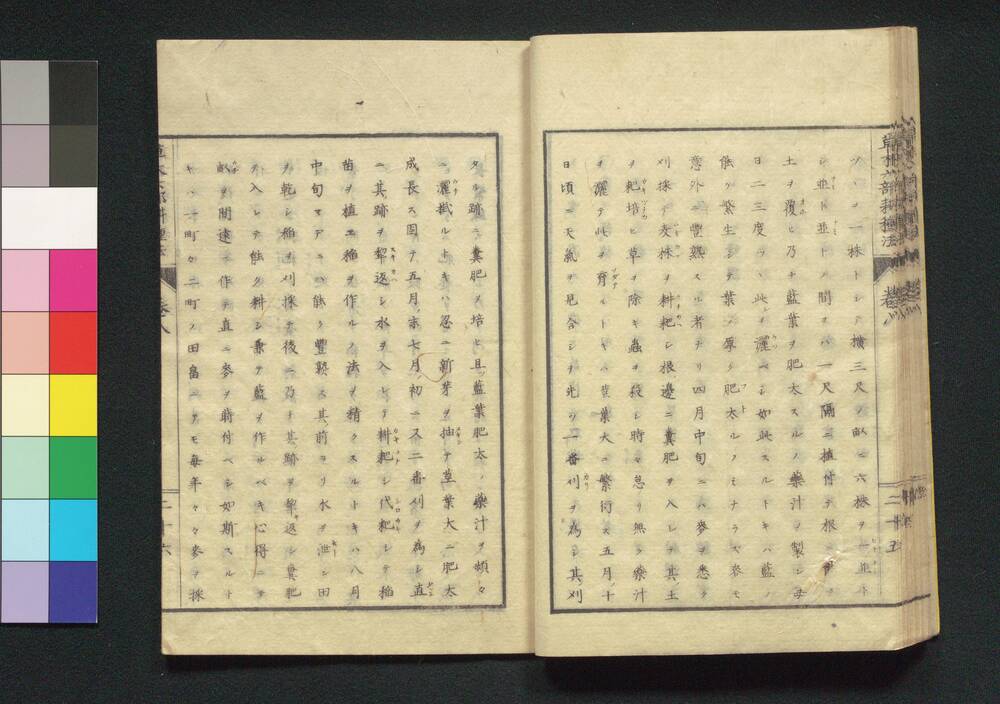 ツヽヲ一株トシテ横三尺ノ畝ニ六株ヲ一並トシ
並ト並トノ間ヲバ一尺隔ニ植付テ根ニ
土ヲ覆ヒ乃チ藍葉ヲ肥太スルノ薬汁ヲ製シ毎
日二三度ヅヽ此ヲ灌ベシ如此スルトキハ藍ノ
能ク繁生シテ葉ノ厚ク肥太ルノミナラズ麥モ
意外ニ豐熟スル者ナリ四月中旬ニハ麥ヲ悉ク
刈採テ麥株ヲ耕耙シ根邊ニ糞肥ヲ入レテ其土
ヲ耙培ヒ草ヲ除キ蟲ヲ殺シ時々怠リ無ク藥汁
ヲ灌テ此ヲ育ルトキハ莖葉大ニ繁衍ス五月十
日頃ニ天氣ヲ見合シテ先ヅ一番刈ヲ為シ其刈
二十五
タル跡ニ糞肥ヲ培ヒ且藍葉肥太ノ藥汁ヲ頻々
ニ灌漑ルトキハ忽ニ新芽ヲ抽テ草葉大ニ肥太
成長ス因テ五月末七月初ニ又二番刈ヲ為シ直
ニ其跡ヲ犂返シ水ヲ入レテ耕耙シ代耙シテ稲
苗ヲ植エ稲ヲ作ルノ法ヲ精クスルトキハ八月
中旬マデニハ能ク豐熟ス其前ヨリ水ヲ泄シ田
ヲ乾シ稲ヲ刈採テ後ニ乃チ其跡ヲ犂返シ糞肥
ヲ入レテ能ク耕シ兼テ藍ヲ作ルベキ心得ニテ
畝ヲ間遠ニ作テ直ニ麥ヲ蒔付ベシ如斯スルト
キハ一町カ二町ノ田畠ニテモ毎年々々麥ヲ採
卷八
二十六